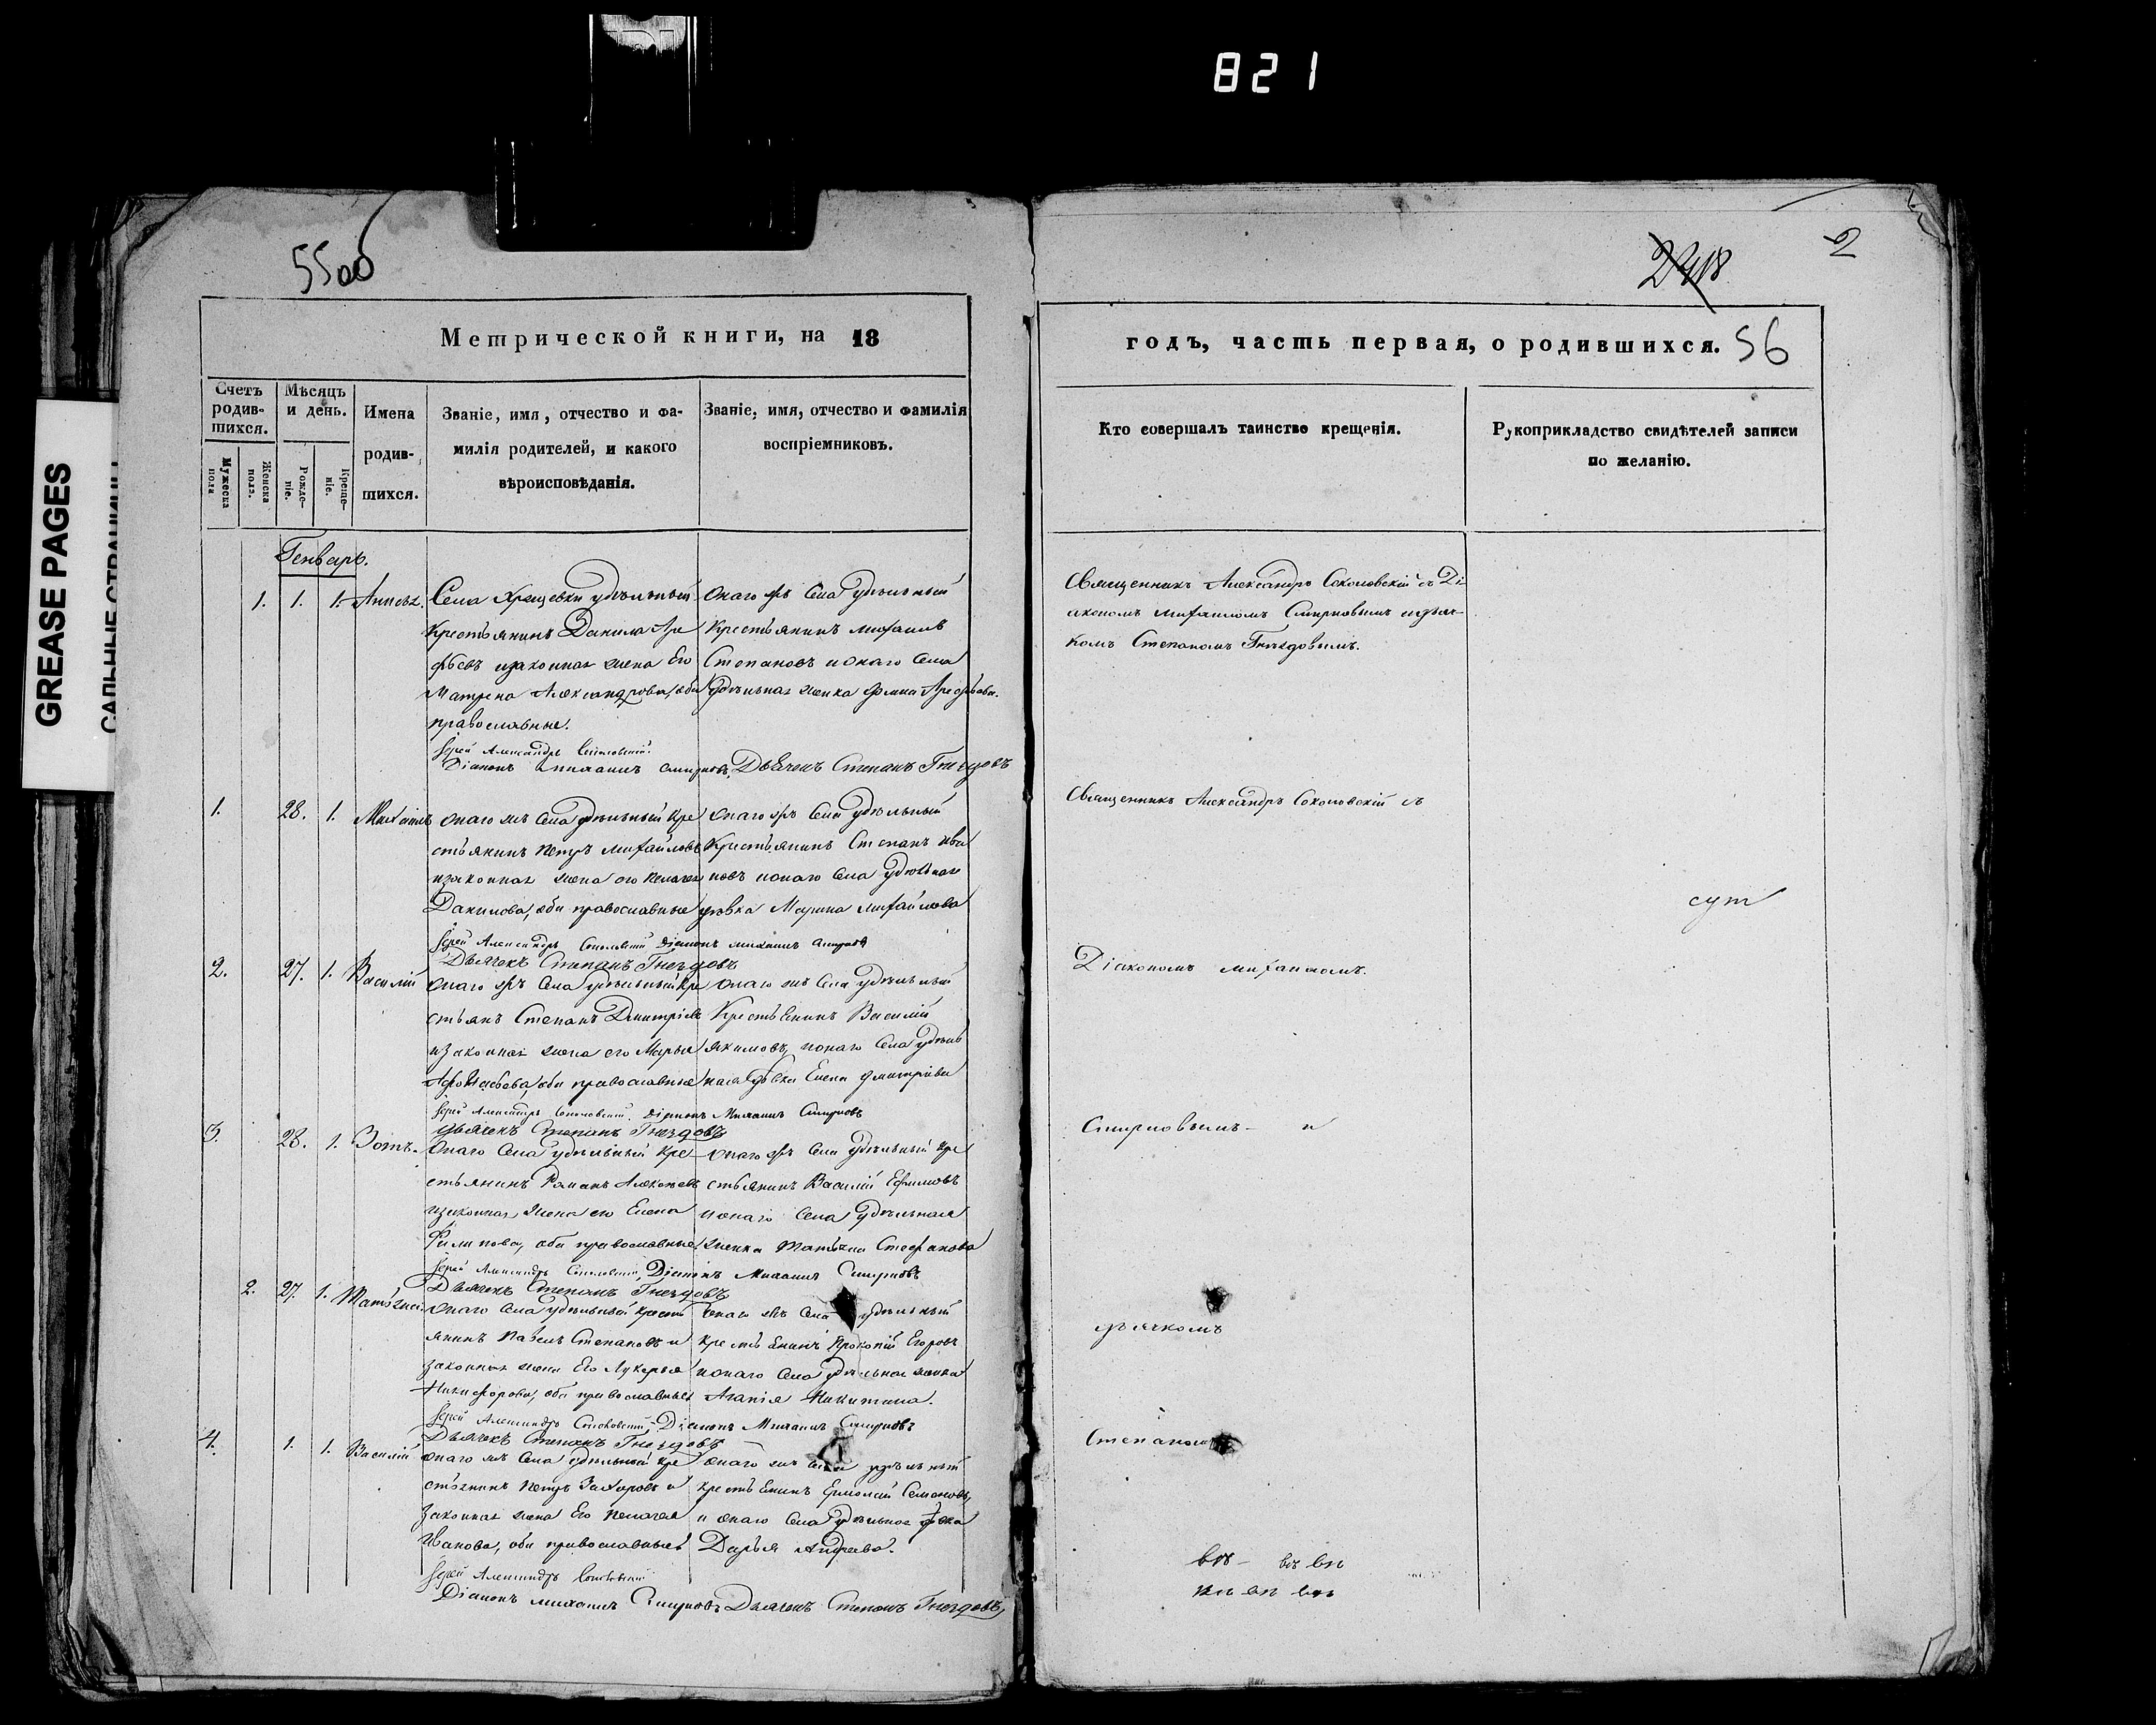 821
GREASE PAGES
5500
2418
56
Метрической книги, на 18
годъ, часть первая, о родившихся.
Счетъ родив-шихся.
Мужеска пола
Женска пола.
Мѣсяцъ и день.
Рожде-ніе.
Креще-ніе.
Имена родив-шихся.
Званіе, имя, отчество и фа-
милія родителей, и какого
вѣроисповѣданія.
Званіе, имя, отчество и фамилія
воспріемниковъ.
Кто совершалъ таинство крещенія.
Рукоприкладство свидѣтелей записи
по желанію.
Генварь.
1. 1. 1. Анна
Села Хрящевки удѣльный
крестьянинъ Данила Аре
фьевъ изаконная жена Его
Матрена Александрова, оба
православные.
Іерей Александръ Соколовскій
Діаконъ Михаилъ Смирновъ, Дьячекъ Степанъ Гнездовъ
онаго жъ Села удѣльный
Крестьянинъ Михаилъ
Степановъ ионаго Села
удѣльная женка Арефьева.
Священникъ Александръ Соколовскій съ Ді-
акономъ Михаиломъ Смирновымъ идьяч-
комъ Степаномъ Гнездовымъ.
1. 28. 1. Михаилъ
онаго жъ Села удѣльный кре
стьянинъ Петръ Михайловъ
изаконная жена его Пелагея
Данилова, оба православные
Іерей Александръ Соколовскій Діаконъ Михаилъ Смирновъ
Дьячекъ Степанъ Гнездовъ
онаго жъ Села удѣльный
Крестьянинъ Степанъ Ива
новъ ионаго Села удѣльная
дѣвка Марина Михайлова
Священникъ Александръ Соколовскій съ
сут
2. 27. 1. Василій
онаго жъ Села удѣльный кре
стьянъ Степанъ Дмитріевъ
изаконная жена его Марья
оба православные
Іерей Александръ Соколовскій Діаконъ Михаилъ Смирновъ
Дьячекъ Степанъ Гнездовъ
онаго жъ Села удѣльный
Крестьянинъ Василій
Якимовъ, ионаго Села удѣль
ная дѣвка Елена Дмитріева
Діакономъ Михаиломъ.
3. 28. 1. Зотъ.
Онаго Села удѣльный кре
стьянинъ Романъ Алексѣевъ
изаконная жена его Елена
Филипова, оба православные
Іерей Александръ Соколовскій, Діаконъ Михаилъ Смирновъ
Дьячекъ Степанъ Гнездовъ
онаго жъ Села удѣльный кре
стьянинъ Василій Ефимовъ
ионаго Села удѣльная
женка Татьяна Стефанова
Смирновымъ- и
2. 27. 1. Татьяна
онаго Села удѣльный крест
янинъ Павелъ Степановъ и
законная жена Его Лукерья
Никифорова, оба православные
Іерей Александръ Соколовскій Діаконъ Михаилъ Смирновъ
Дьячекъ Степанъ Гнездовъ
онаго жъ Села удѣльный
крестьянинъ Прокопій Егоровъ
ионаго Села удѣльная женка
Агапія Никитина.
дьячкомъ
4. 1. 1. Василій
онаго жъ Села удѣльный кре
стьянинъ Петръ Захаровъ и
законная жена Его Пелагея
Иванова, оба православные
Іерей Александръ Соколовскій
Діаконъ Михаилъ Смирновъ Дьячекъ Степанъ Гнездовъ
онаго жъ Села удѣльный
крестьянинъ Ермолай Семеновъ,
и онаго Села удѣльная дѣвка
Дарья Андреева.
Степаномъ